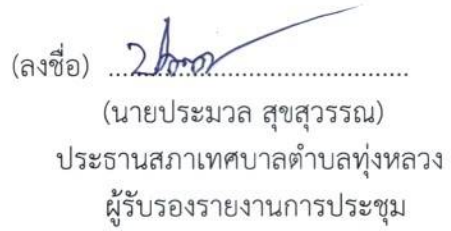 (ลงชื่อ) ........................................
(นายประมวล สุขสุวรรณ)
ประธานสภาเทศบาลตำบลทุ่งหลวง
ผู้รับรองรายงานการประชุม